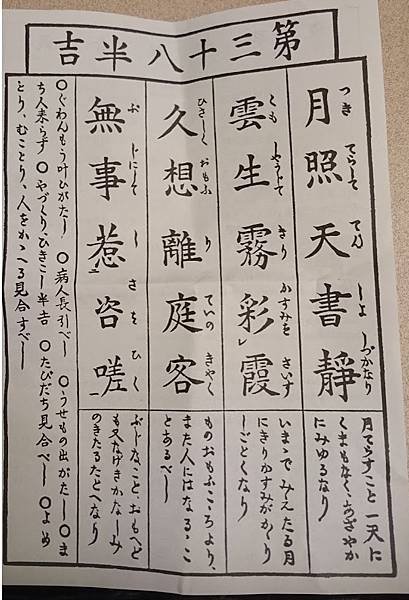 第三十八半吉
月照天書靜
つき てらして てん しよ しづかなり
月てらすこと一天に
くまもなく、あざやか
にみゆるなり
雲生霧彩レ霞
くも しやうじて きり かすみを さいす
いまゝでみえたる月
にきりかすみがかゝり
しごとくなり
久想離庭客
ひさしく おもふ り ていの きやく
ものおもふこゝろより、
また人にはなるゝこ
とあるべし
無事惹二咨嗟一
ぶ じにして し さを ひく
ぶじなことゝおもへど
も又なげきかなしみ
のきたるたとへなり
○ぐわんもう叶ひがたし ○病人長引べし ○うせもの出がたし ○ま
ち人来らず ○やづくり、ひきこし半吉 ○たびだち見合べし ○よめ
とり、むことり、人をかゝへる見合すべし